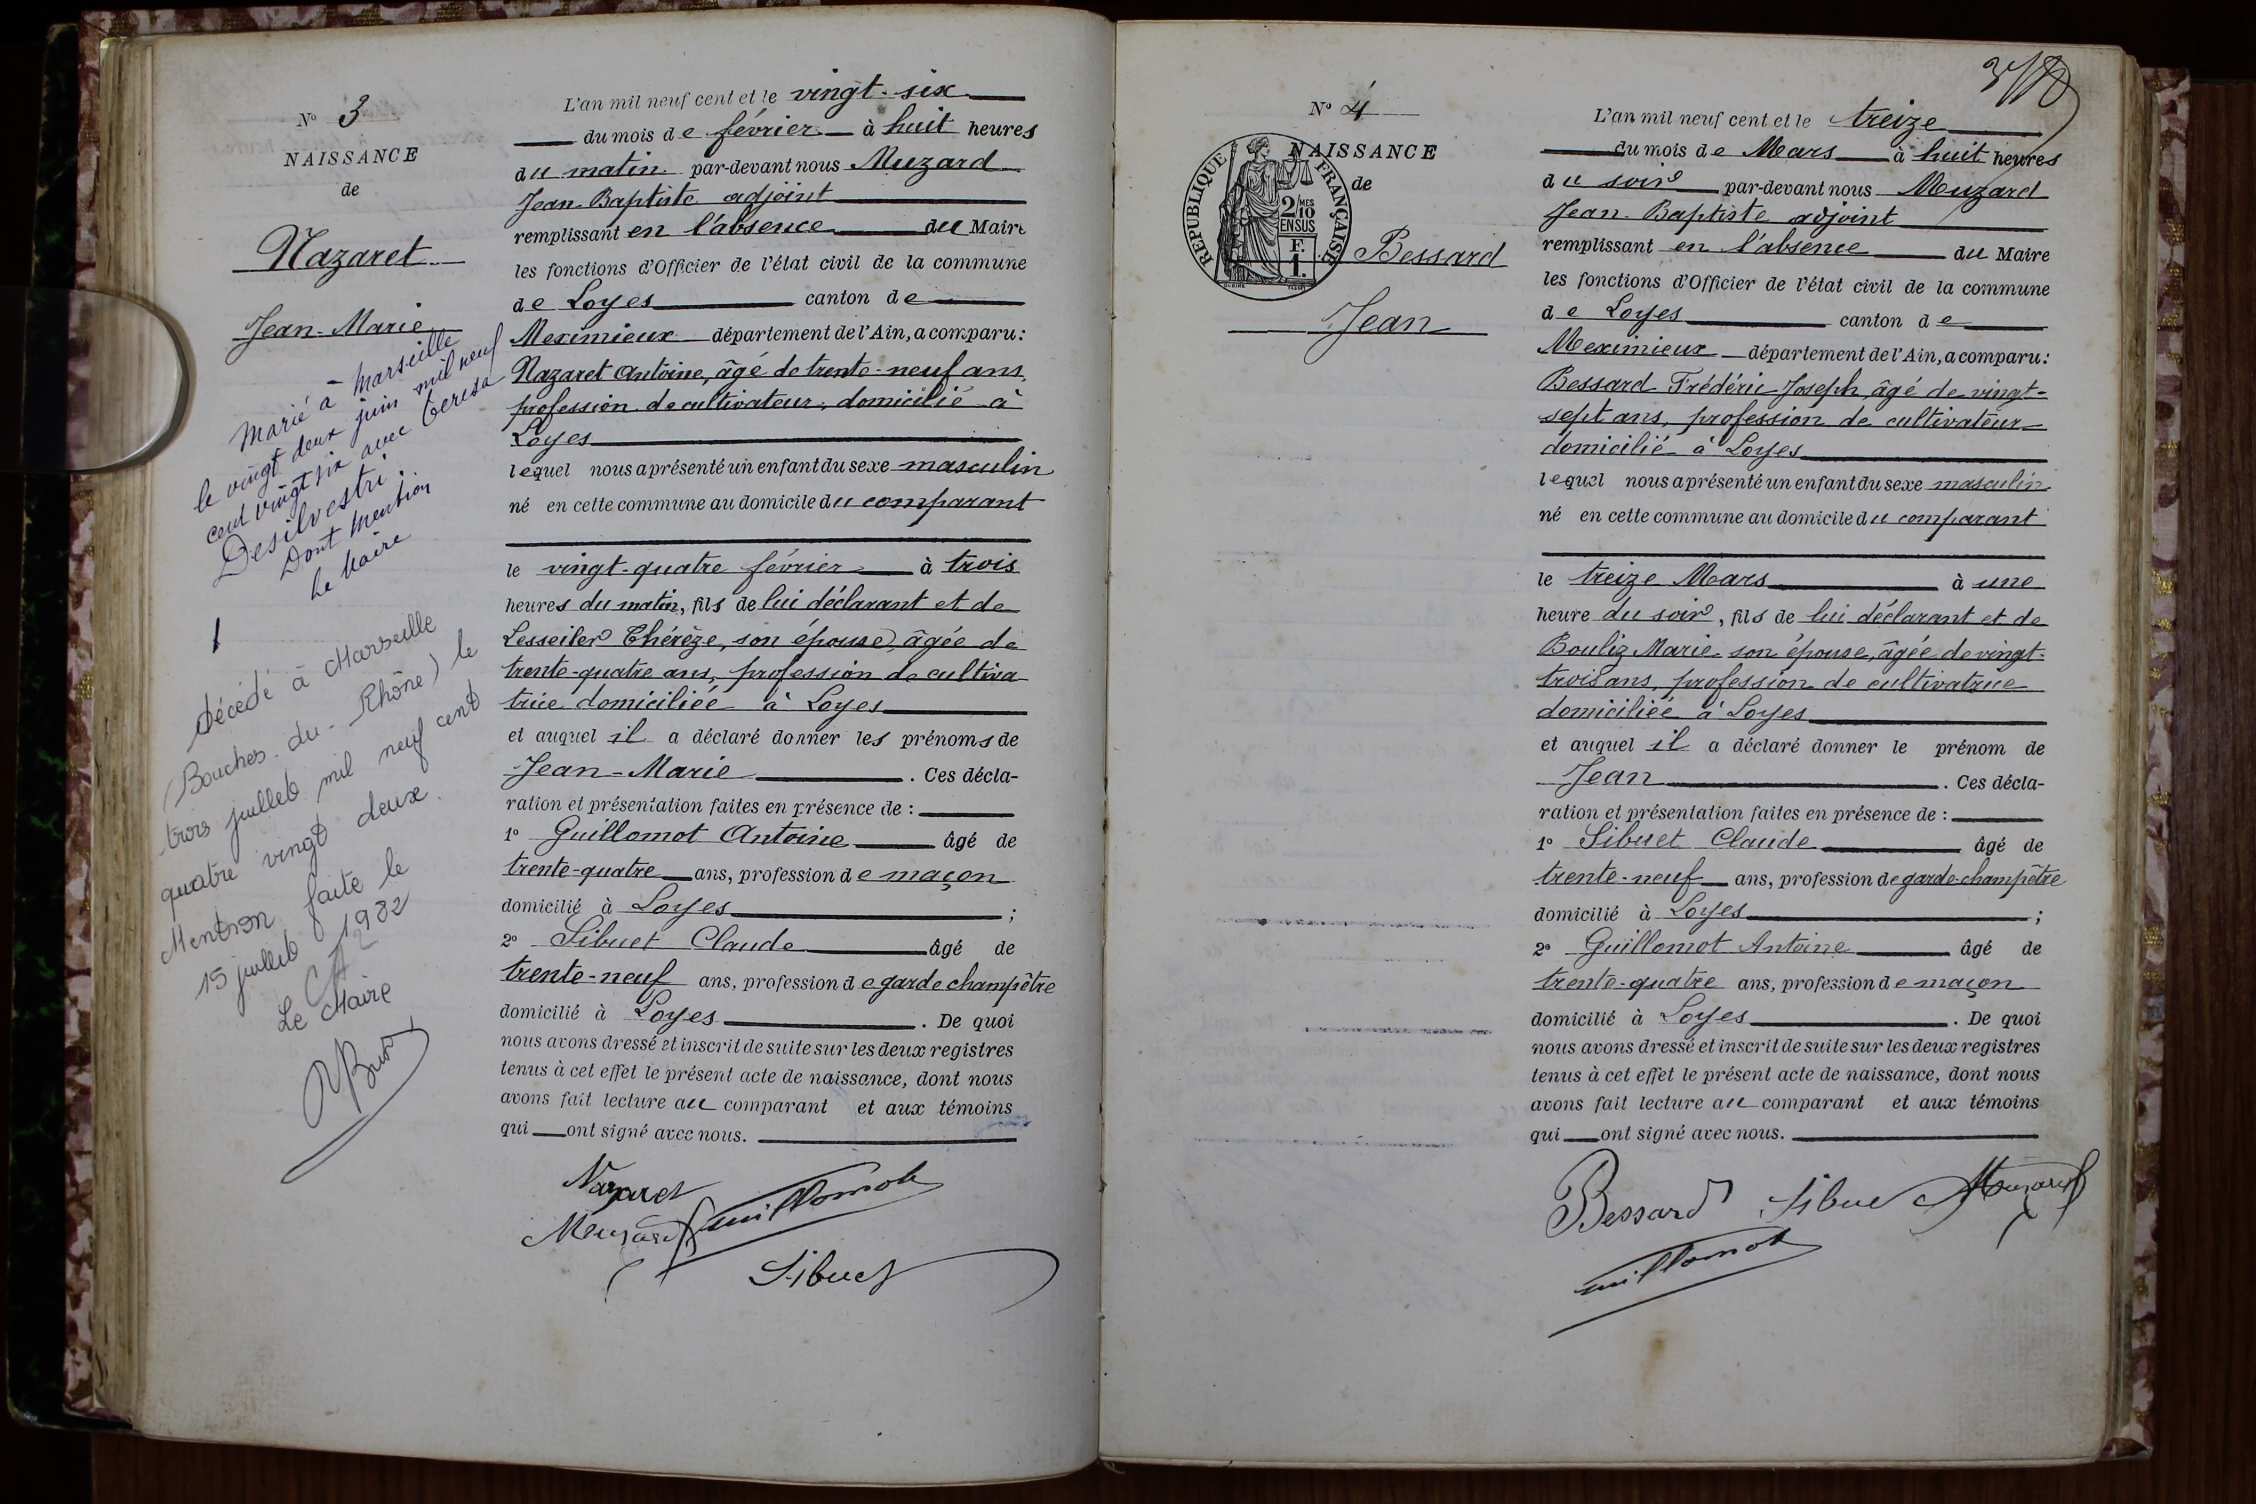 N° 3
NAISSANCE
de
Nazaret
Jean-Marie
Marié à Marseille
le vingt deux juin mil neuf
cent vingt six avec Teresa
Desilvestri.
Dont mention
Le Maire
Décédé à Marseille
(Bouches-du-Rhône) le
trois juillet mil neuf cent
quatre vingt deux.
Mention faite le
15 juillet 1982
Le Maire
L'an mil neuf cent et le vingt-six
du mois de février à huit heures
du matin par-devant nous Muzard
Jean-Baptiste adjoint
remplissant en l'absence du Maire
les fonctions d'Officier de l'état civil de la commune
de Loyes canton de
Meximieux département de l'Ain, a comparu:
Nazaret Antoine, âgé de trente-neuf ans,
profession de cultivateur, domicilié à
Loyes
lequel nous a présenté un enfant du sexe masculin
né en cette commune au domicile du comparant
le vingt-quatre février à trois
heures du matin, fils de lui déclarant et de
Lesseiler Thérèze, son épouse, âgée de
trente-quatre ans, profession de cultiva
trice domiciliée à Loyes
et auquel il a déclaré donner les prénoms de
Jean-Marie. Ces décla-
ration et présentation faites en présence de :
1° Guillomot Antoine âgé de
trente-quatre ans, profession de maçon
domicilié à Loyes ;
2° Sibuet Claude âgé de
trente-neuf ans, profession de garde champêtre
domicilié à Loyes. De quoi
nous avons dressé et inscrit de suite sur les deux registres
tenus à cet effet le présent acte de naissance, dont nous
avons fait lecture au comparant et aux témoins
qui ont signé avec nous.
Nazaret
Muzard Guillomot
Sibuet
N° 4
NAISSANCE
de
RÉPUBLIQUE FRANÇAISE
2/10 MES
EN SUS
F.
1.
Bessard
Jean
L'an mil neuf cent et le treize
du mois de Mars à huit heures
du soir par-devant nous Muzard
Jean-Baptiste adjoint
remplissant en l'absence du Maire
les fonctions d'Officier de l'état civil de la commune
de Loyes canton de
Meximieux département de l'Ain, a comparu:
Bessard Frédéric Joseph, âgé de vingt-
sept ans, profession de cultivateur
domicilié à Loyes
lequel nous a présenté un enfant du sexe masculin
né en cette commune au domicile du comparant
le treize Mars à une
heure du soir, fils de lui déclarant et de
Bouliz Marie son épouse, âgée de vingt-
trois ans, profession de cultivatrice
domiciliée à Loyes
et auquel il a déclaré donner le prénom de
Jean. Ces décla-
ration et présentation faites en présence de :
1° Sibuet Claude âgé de
trente-neuf ans, profession de garde-champêtre
domicilié à Loyes ;
2° Guillomot Antoine âgé de
trente-quatre ans, profession de maçon
domicilié à Loyes. De quoi
nous avons dressé et inscrit de suite sur les deux registres
tenus à cet effet le présent acte de naissance, dont nous
avons fait lecture au comparant et aux témoins
qui ont signé avec nous.
Bessard Sibuet Muzard
Guillomot